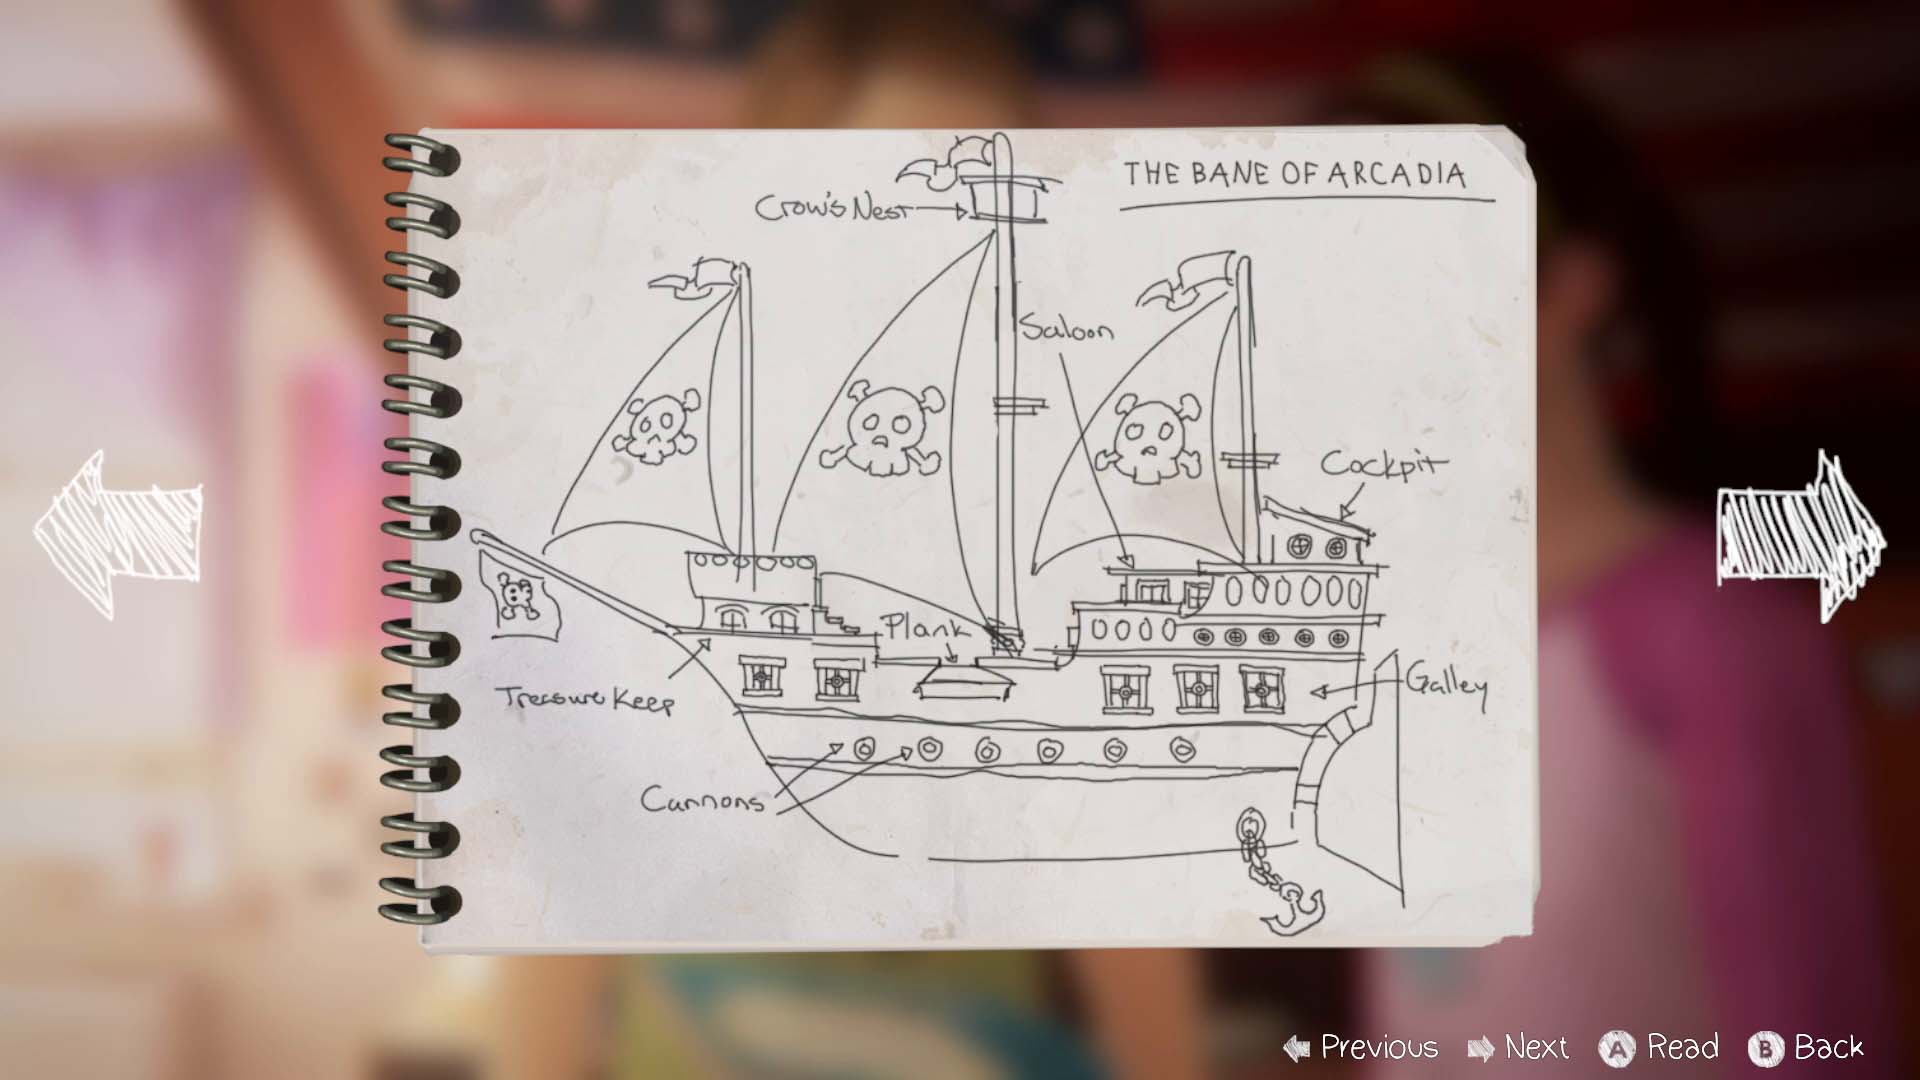 THE BANE OF ARCADIA
Crow's Nest
Saloon
Cockpit
Plank
Treasure Keep
Galley
Cannons
Previous
Next
A Read
B Back